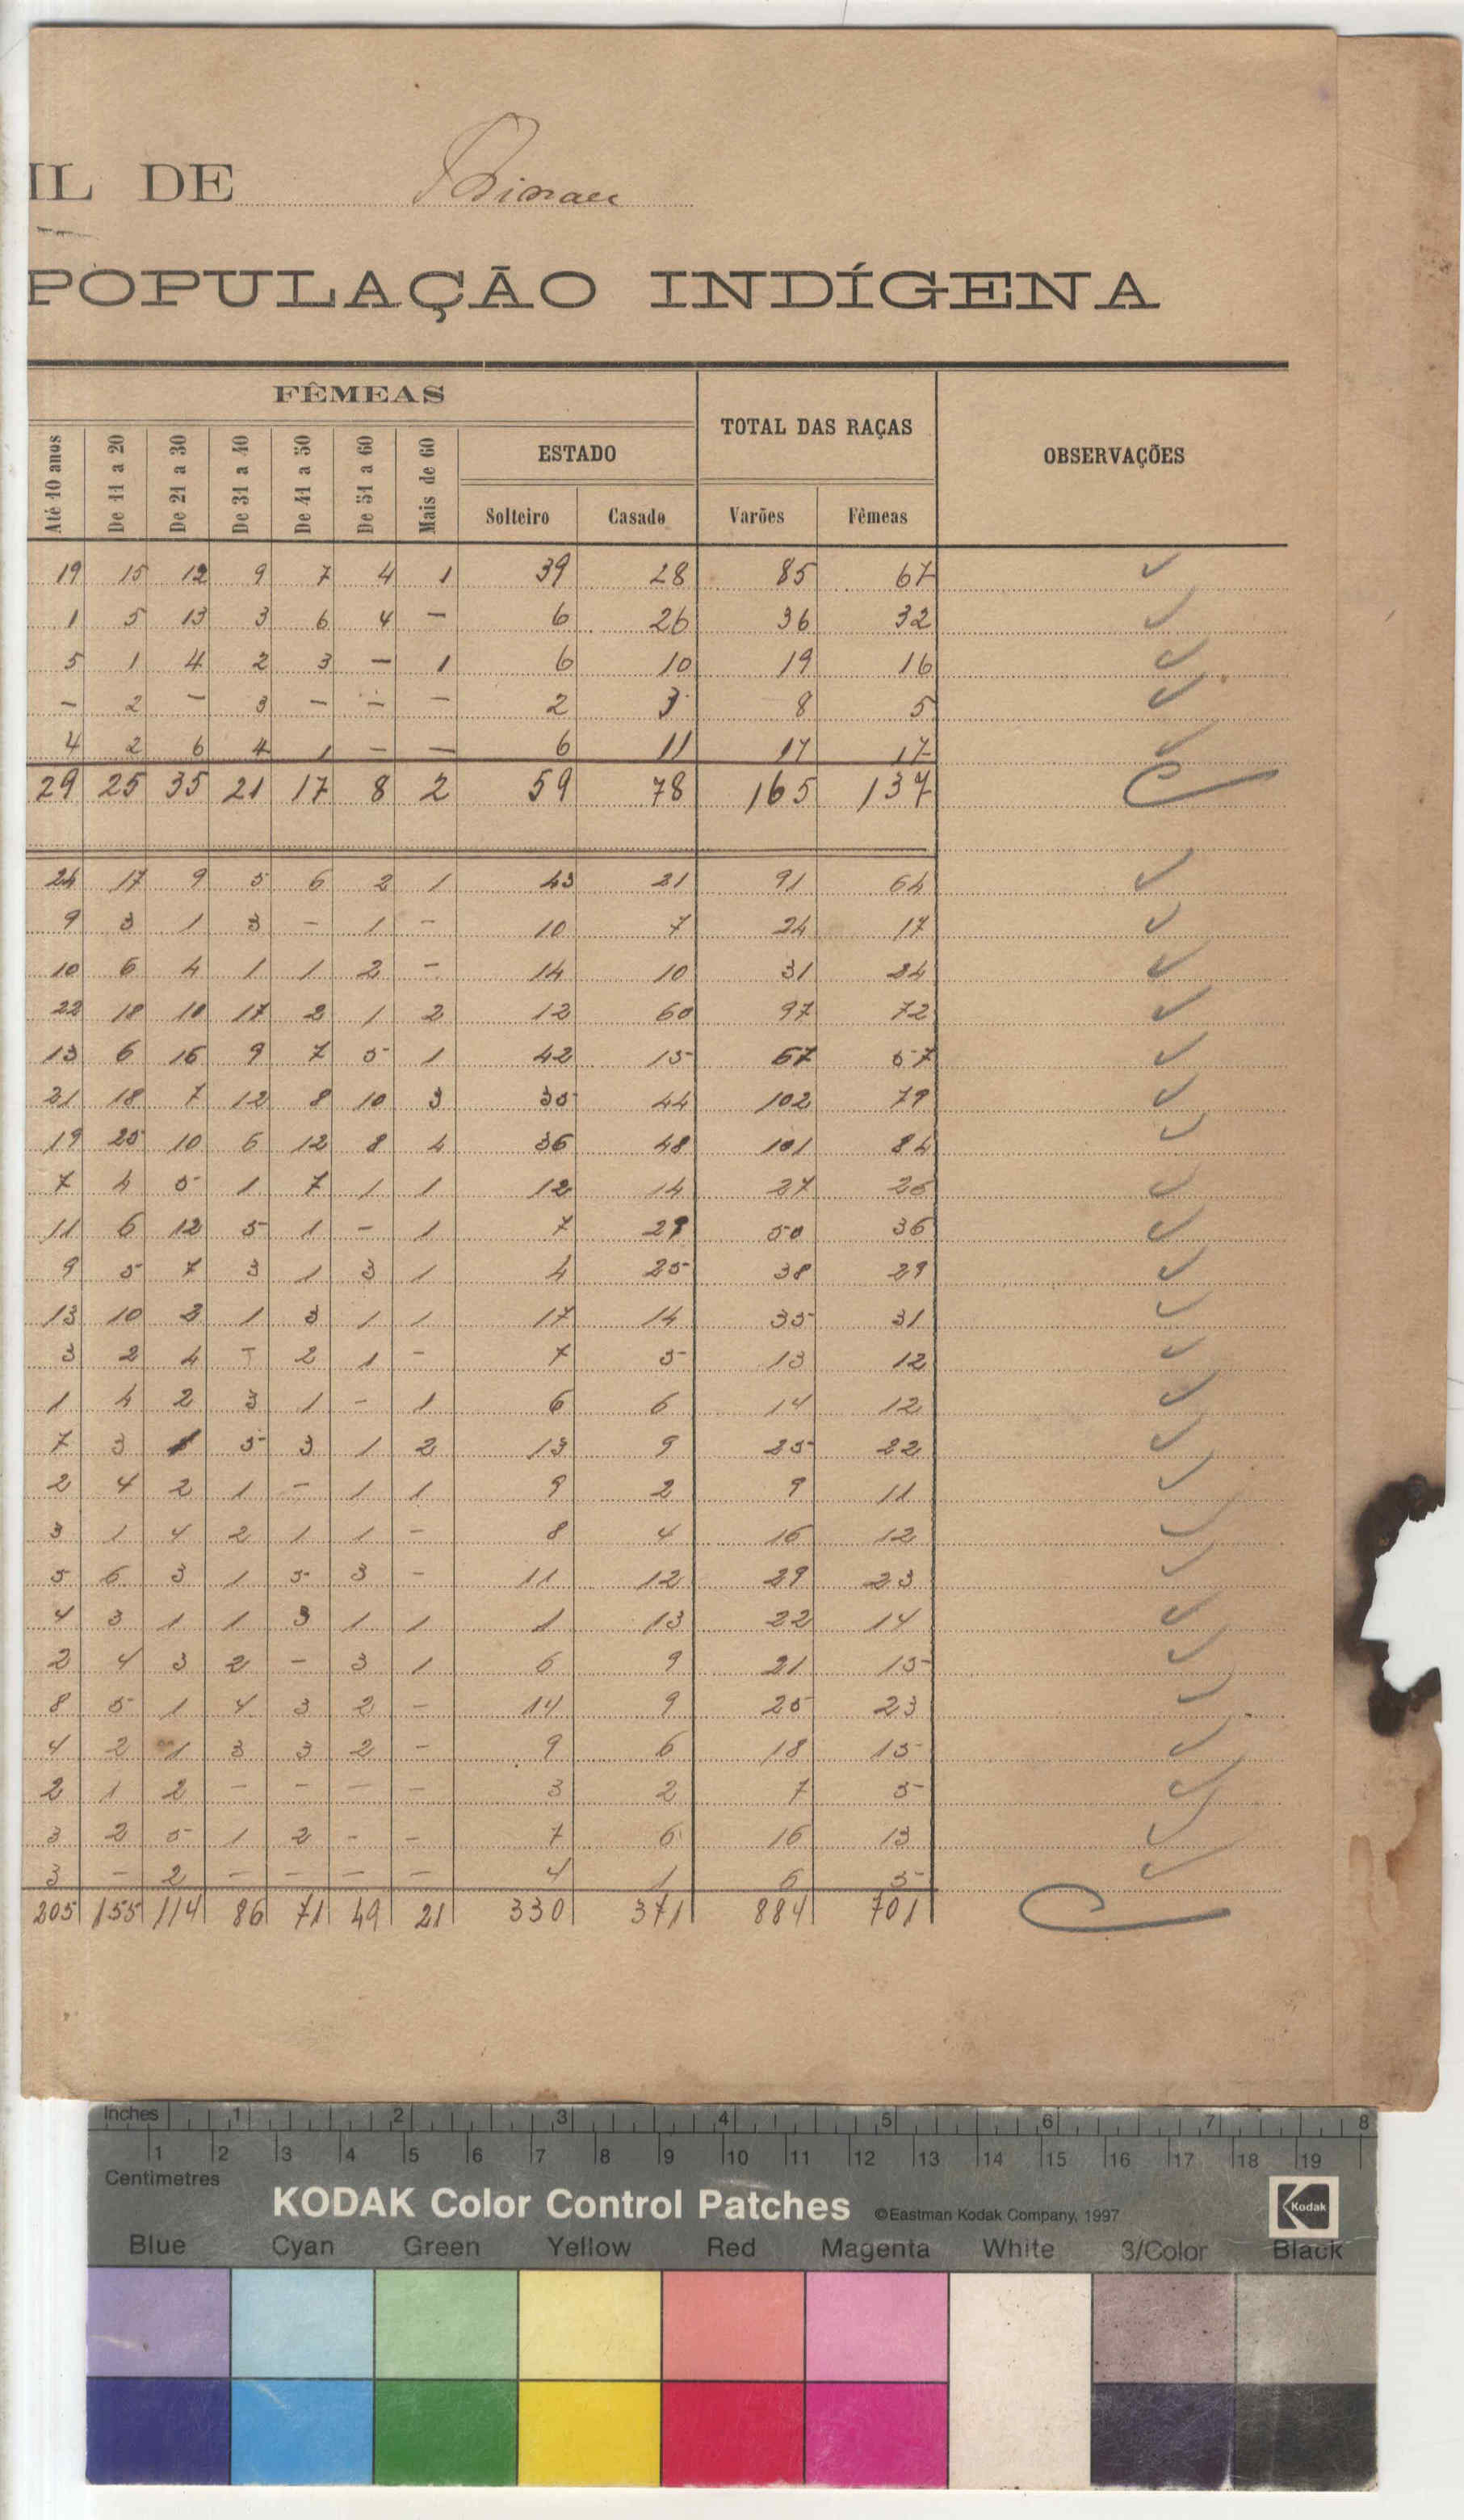 IL DE
POPULAÇÃO INDÍGENA
FÊMEAS
TOTAL DAS RAÇAS
OBSERVAÇÕES
ESTADO
Até 10 anos De 11 a 20 De 21 a 30 De 31 a 40 De 41 a 50 De 51 a 60 Mais de 60 Solteiro Casado Varões Fêmeas
19 15 12 9 7 4 1 39 28 85 67 ✓
1 5 13 3 6 4 — 6 26 36 32 ✓
5 1 4 2 3 — 1 6 10 19 16 ✓
— 2 — 3 — — — 2 3 8 5 ✓
4 2 6 4 1 — — 6 11 17 17 ✓
29 25 35 21 17 8 2 59 78 165 137
24 17 9 5 6 2 1 43 21 91 64 ✓
9 3 1 3 — 1 — 10 7 24 17 ✓
10 6 4 1 1 2 — 14 10 31 24 ✓
22 18 10 17 2 1 2 12 60 97 72 ✓
13 6 16 9 7 5 1 42 15 67 57 ✓
21 18 7 12 8 10 3 35 44 102 79 ✓
19 25 10 6 12 8 4 36 48 101 84 ✓
7 4 5 1 7 1 1 12 14 27 26 ✓
11 6 12 5 1 — 1 7 29 50 36 ✓
9 5 7 3 1 3 1 4 25 38 29 ✓
13 10 2 1 3 1 1 17 14 35 31 ✓
3 2 4 — 2 1 — 7 5 13 12 ✓
1 4 2 3 1 — 1 6 6 14 12 ✓
7 3 1 5 3 1 2 13 9 25 22 ✓
2 4 2 1 — 1 1 9 2 9 11 ✓
3 1 4 2 1 1 — 8 4 16 12 ✓
5 6 3 1 5 3 — 11 12 29 23 ✓
4 3 1 1 3 1 1 1 13 22 14 ✓
2 4 3 2 — 3 1 6 9 21 15 ✓
8 5 1 4 3 2 — 14 9 25 23 ✓
4 2 1 3 3 2 — 9 6 18 15 ✓
2 1 2 — — — — 3 2 7 5 ✓
3 2 5 1 2 — — 7 6 16 13 ✓
3 — 2 — — — — 4 1 6 5 ✓
205 155 114 86 71 49 21 330 371 884 701
Inches 1 2 3 4 5 6 7 8
1 2 3 4 5 6 7 8 9 10 11 12 13 14 15 16 17 18 19
Centimetres
KODAK Color Control Patches ©Eastman Kodak Company, 1997 Kodak
Blue Cyan Green Yellow Red Magenta White 3/Color Black